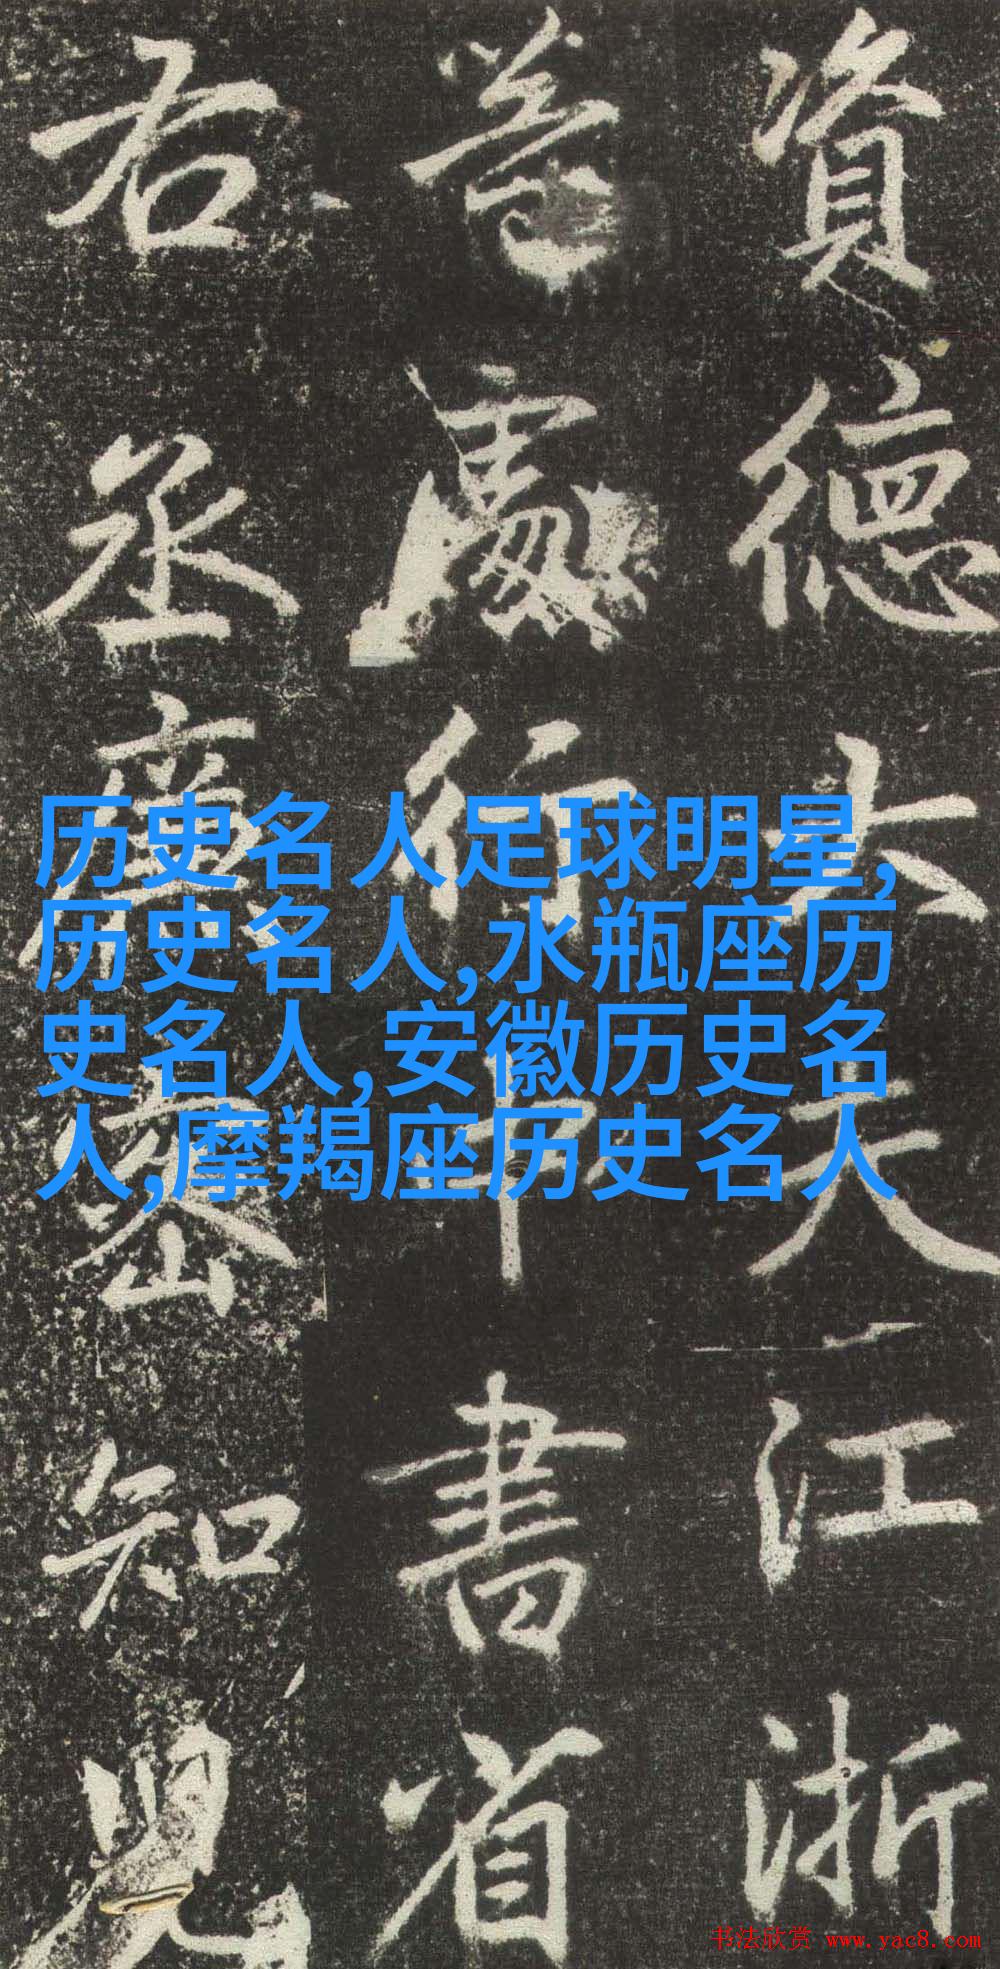 資德大夫江浙
等處行中書省
右丞知
历史名人足球明星,
历史名人,水瓶座历
史名人,安徽历史名
人,摩羯座历史名人
书法欣赏 www.yac8.com